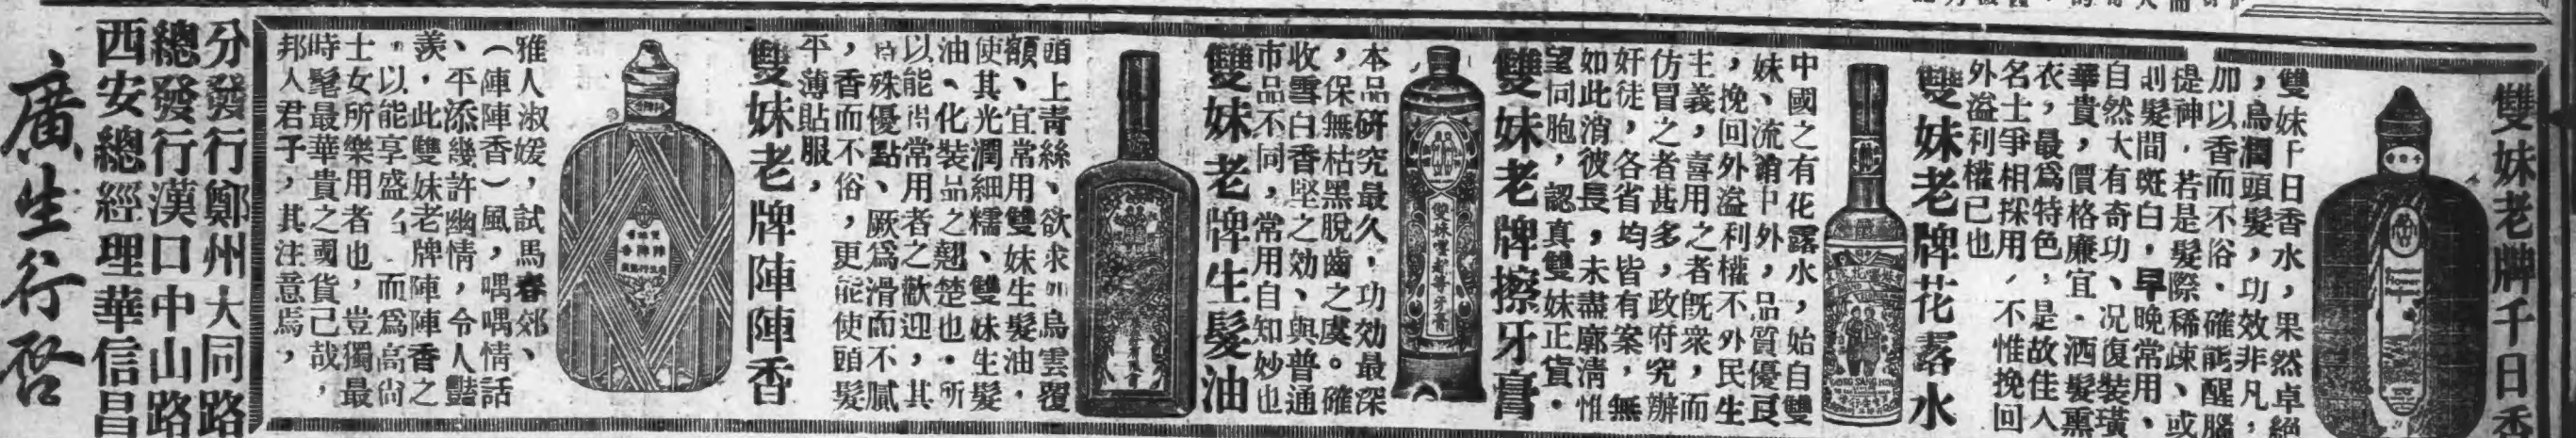 雙妹老牌千日香
雙妹千日香水，果然卓絕
，烏潤頭髮，功效非凡，
加以香而不俗，確能醒腦
提神，若是髮際稀疎、或
則髮間斑白，早晚常用、
自然大有奇功、况復裝璜
華貴，價格廉宜，洒髮熏
衣，最為特色，是故佳人
名士爭相採用，不惟挽回
外溢利權己也
雙妹老牌花露水
中國之有花露水，始自雙
妹、流銷中外，品質優良
，挽回外溢利權不外民生
主義，喜用之者既衆，而
仿冒之者甚多，政府究辦
奸徒，各省均皆有案，無
如此消彼長，未盡廓清惟
望同胞，認真雙妹正貨。
雙妹老牌擦牙膏
本品研究最久，功効最深
，保無枯黑脫齒之虞。確
收雪白香堅之効、與普通
市品不同，常用自知妙也
雙妹嘜超等牙膏
雙妹老牌生髮油
頭上青絲、欲求如烏雲覆
額、宜常用雙妹生髮油，
使其光潤細糯、雙妹生髮
油、化裝品之翹楚也。所
以能得常用者之歡迎，其
特殊優點、厥為滑而不膩
，香而不俗，更能使頭髮
平薄貼服，
雙妹老牌陣陣香
雅人淑媛，試馬春郊、
（陣陣香）風，喁喁情話
、平添幾許幽情，令人豔
羨，此雙妹老牌陣陣香之
，以能享盛名，而為高尚
士女所樂用者也，豈獨最
時髦最華貴之國貨己哉，
邦人君子，其注意焉，
分發行鄭州大同路
總發行漢口中山路
西安總經理華信昌
廣生行啓